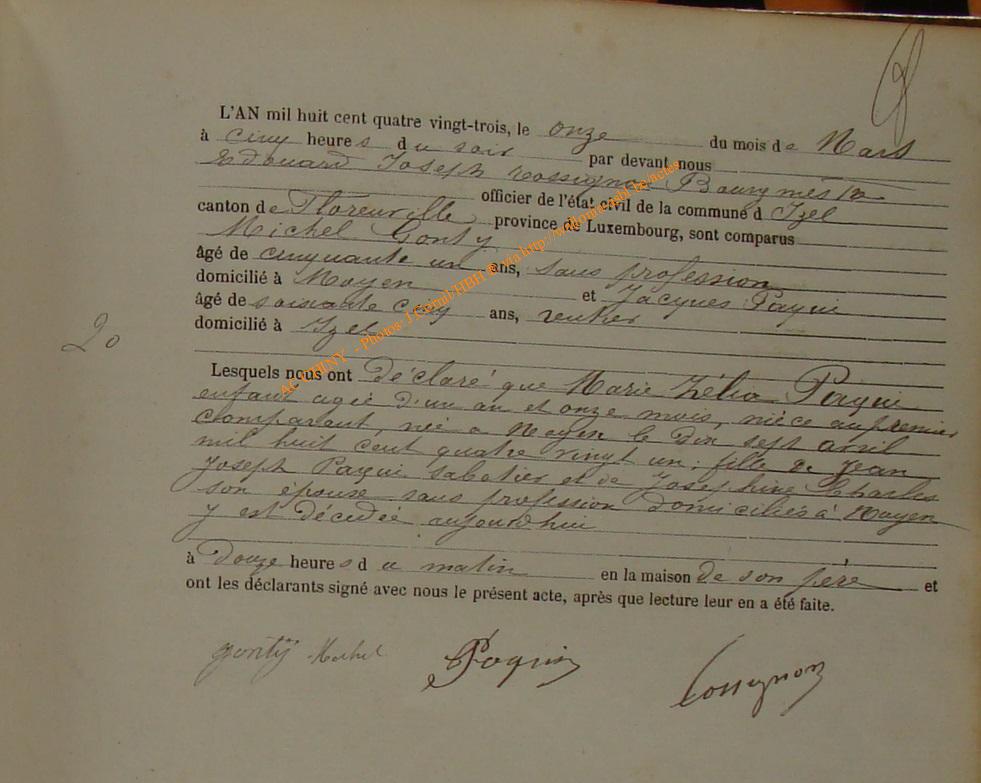 L'AN mil huit cent quatre vingt-trois, le onze du mois de Mars
à cinq heures du soir par devant nous
Edouard Joseph Rossignon Bourgmestre
officier de l'état civil de la commune d Izel
canton de Florenville province de Luxembourg, sont comparus
Michel Gonty
âgé de cinquante un ans, sans profession
domicilié à Moyen et Jacques Paquin
âgé de soixante cinq ans, rentier
domicilié à Izel
20
Lesquels nous ont déclaré que Marie Zélia Paquin
enfant agée d'un an et onze mois, nièce au premier
comparant, née à Moyen le dix sept avril
mil huit cent quatre vingt un, fille de Jean
Joseph Paquin sabotier et de Joséphine Charles
son épouse sans profession domiciliés à Moyen
y est décédée aujourd'hui
à douze heures du matin en la maison de son père et
ont les déclarants signé avec nous le présent acte, après que lecture leur en a été faite.
gonty Michel Paquin Rossignon
ACTCHINY - Photos J.Carnol/HBH ® via http://wallonia-asbl.be/actes